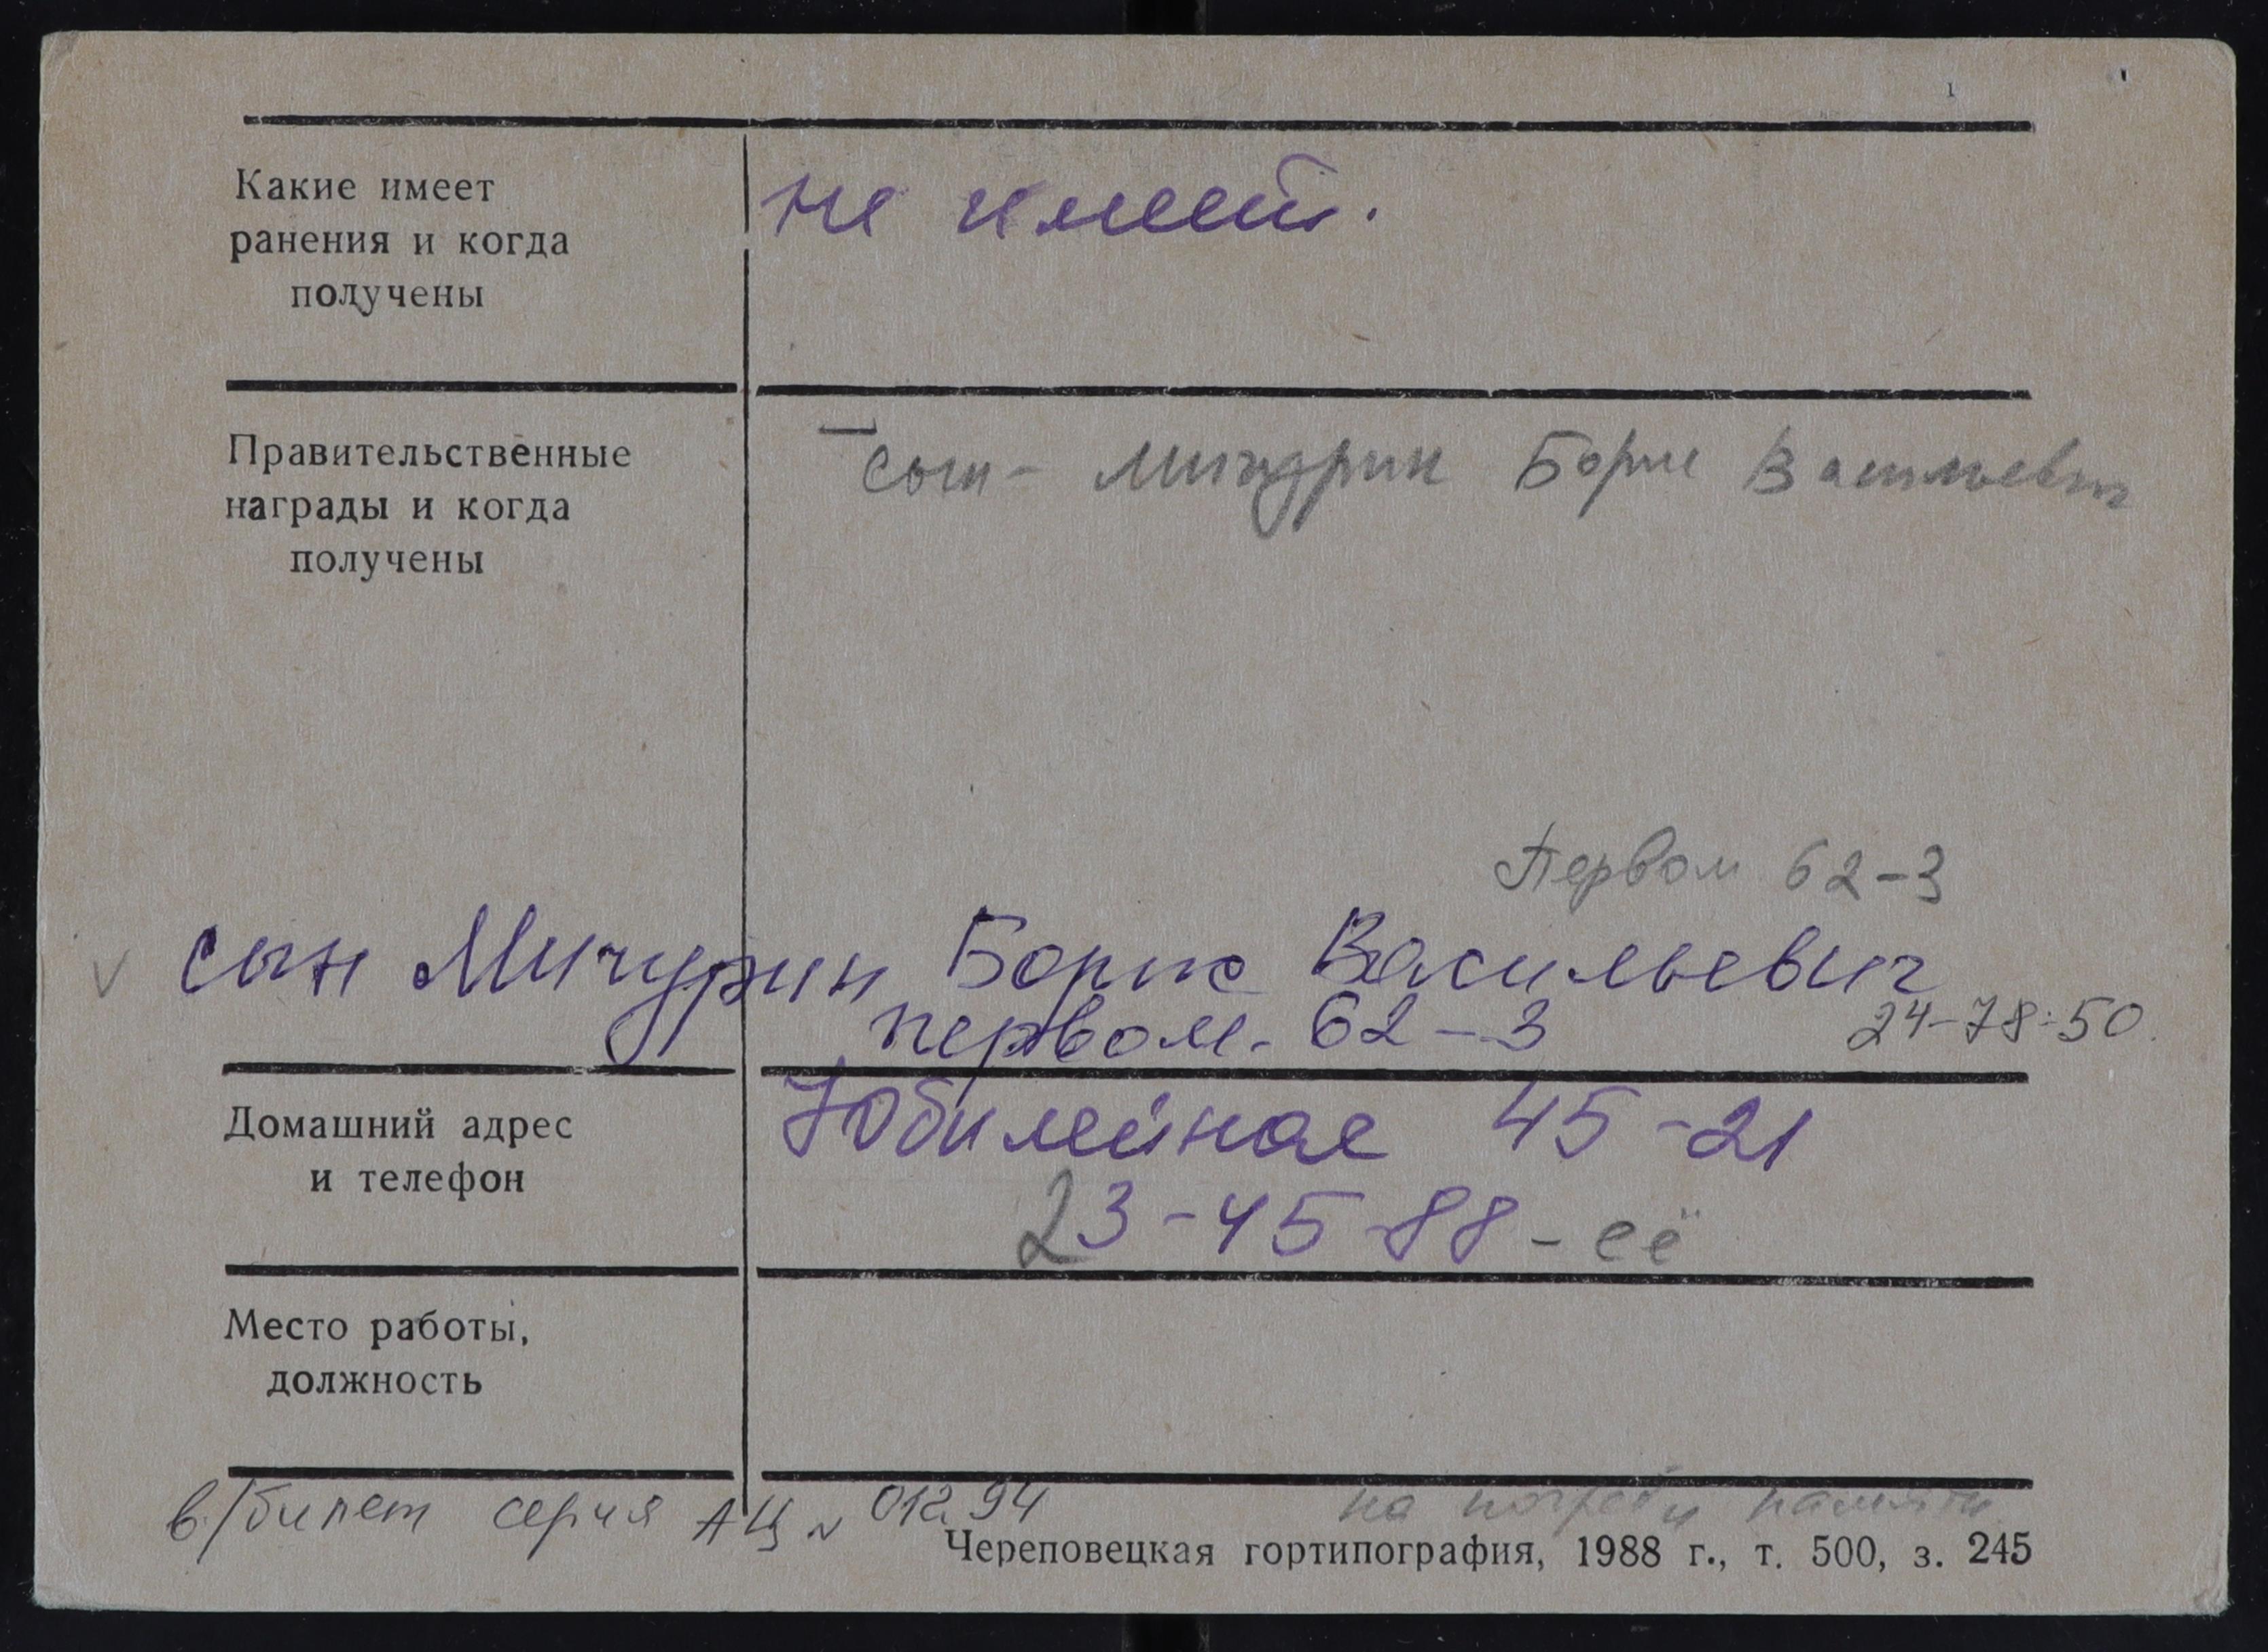 Какие имеет
ранения и когда
получены
не имеет.
Правительственные
награды и когда
получены
сын - Мичурин Борис Васильевич
Первом 62-3
V сын Мичурин Борис Васильевич
первом. 62-3
24-78-50.
Домашний адрес
и телефон
Юбилейная 45-21
23-45-88 - её
Место работы,
должность
в/билет серия АЦ N 01294
на памяти
Череповецкая гортипография, 1988 г., т. 500, з. 245